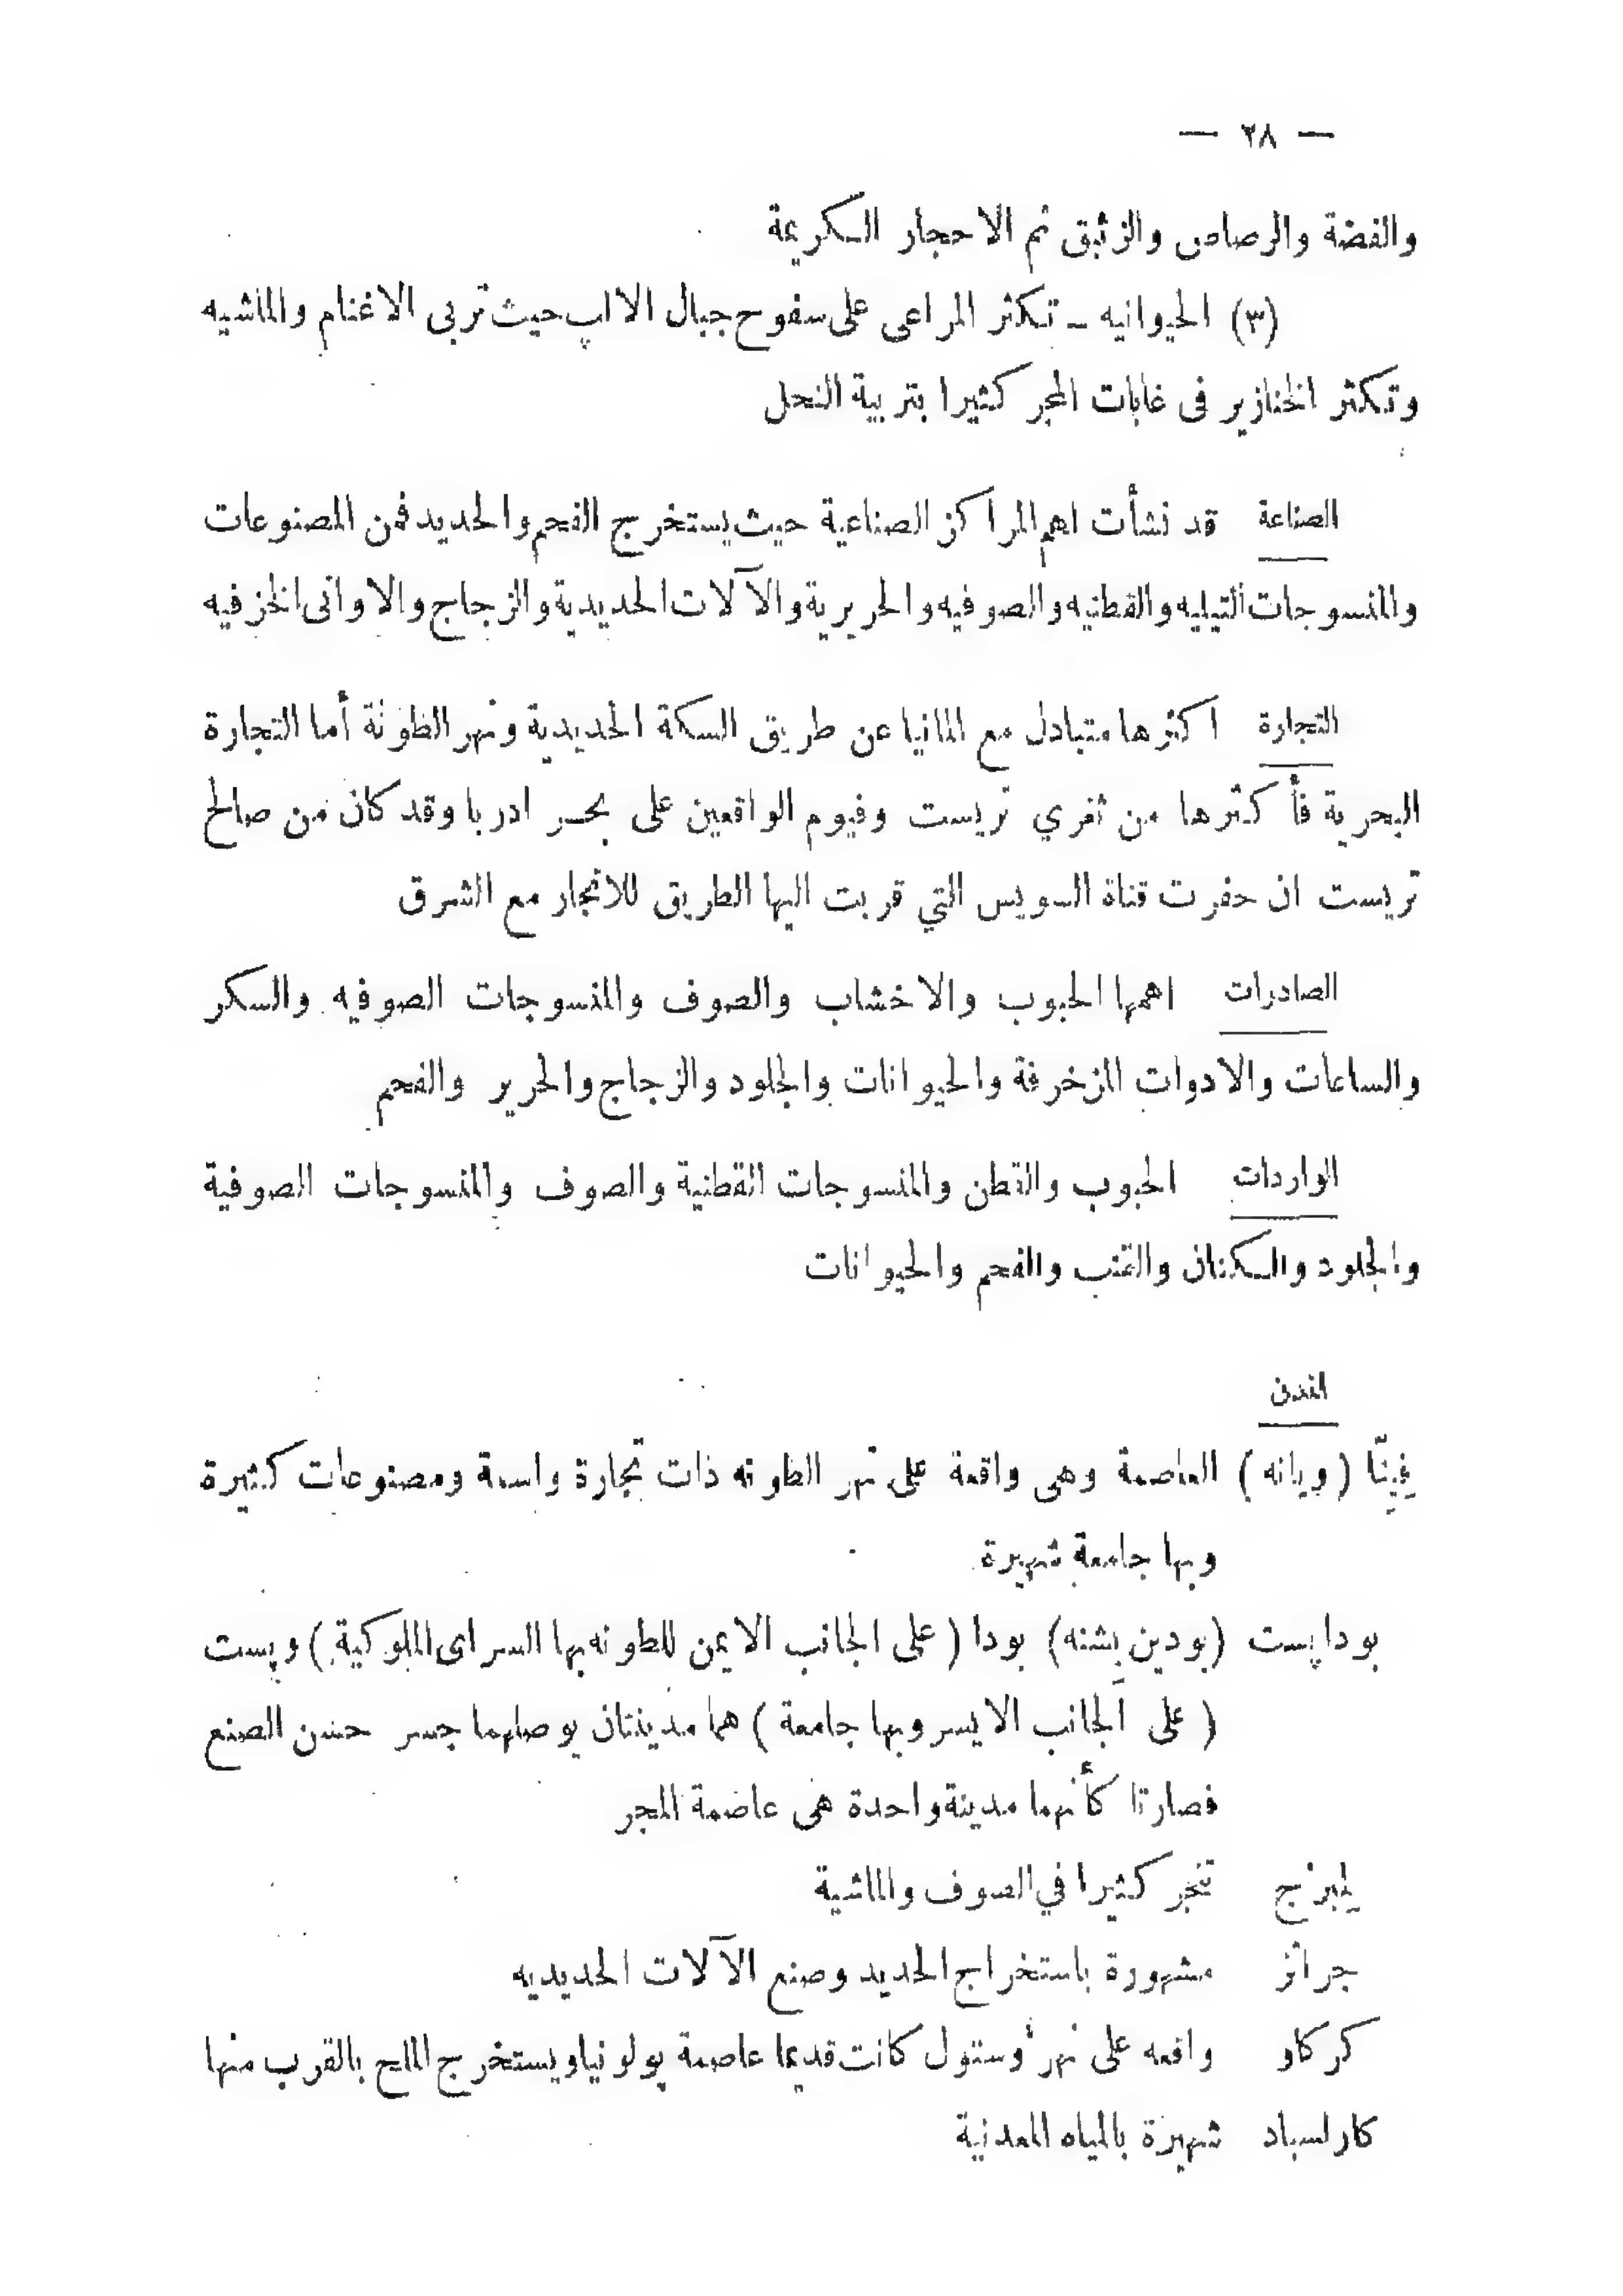 — ٢٨ —
والفضة والرصاص والزئبق ثم الاحجار الكريمة
(٣) الحيوانيه ـ تكثر المراعى على سفوح جبال الالپ حيث تربى الاغنام والماشيه
وتكثر الخنازير فى غابات المجر كثيرا بتربية النحل
الصناعة قد نشأت اهم المراكز الصناعية حيث يستخرج الفحم والحديد فمن المصنوعات
والمنسوجات التيليه والقطنيه والصوفيه والحريرية والآلات الحديدية والزجاج والاوانى الخزفيه
التجارة اكثرها متبادل مع المانيا عن طريق السكة الحديدية ونهر الطونة أما التجارة
البحرية فأكثرها من ثغري تريست وفيوم الواقعين على بحر ادريا وقد كان من صالح
تريست ان حفرت قناة السويس التي قربت اليها الطريق للاتجار مع الشرق
الصادرات اهمها الحبوب والاخشاب والصوف والمنسوجات الصوفيه والسكر
والساعات والادوات المزخرفة والحيوانات والجلود والزجاج والحرير والفحم
الواردات الحبوب والقطن والمنسوجات القطنية والصوف والمنسوجات الصوفية
والجلود والكتان والقنب والفحم والحيوانات
المدن
فِيِنّا (ويانه) العاصمة وهى واقعة على نهر الطونه ذات تجارة واسعة ومصنوعات كثيرة
وبها جامعة شهيرة
بوداپست (بودين پشته) بودا (على الجانب الايمن للطونه بها السراى الملوكية) وپست
(على الجانب الايسر وبها جامعة) هما مدينتان يوصلهما جسر حسن الصنع
فصارتا كأنهما مدينة واحدة هى عاصمة المجر
لِمبرْج تتجر كثيرا في الصوف والماشية
جراتز مشهورة باستخراج الحديد وصنع الآلات الحديديه
كركاو واقعه على نهر وستول كانت قديما عاصمة پولونيا ويستخرج الملح بالقرب منها
كارلسباد شهيرة بالمياه المعدنية